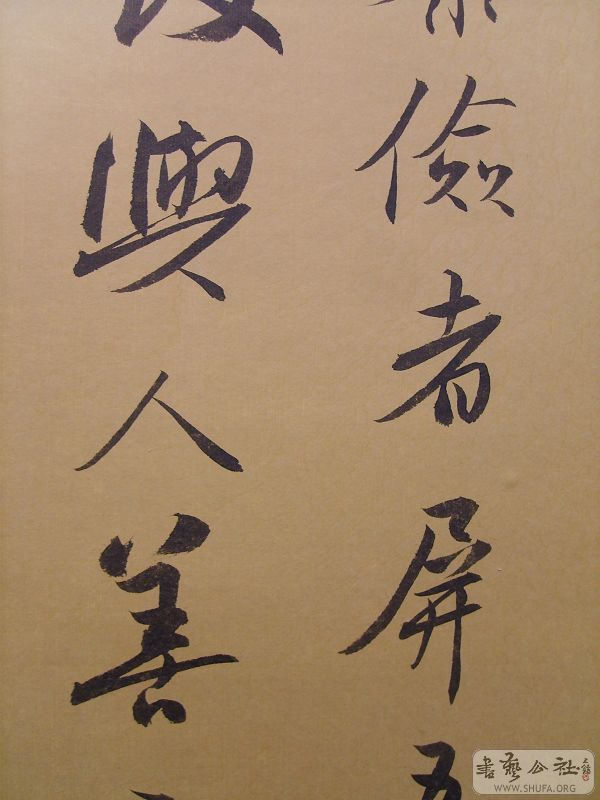 儉者屏五
與人善
書藝公社
WWW.SHUFA.ORG